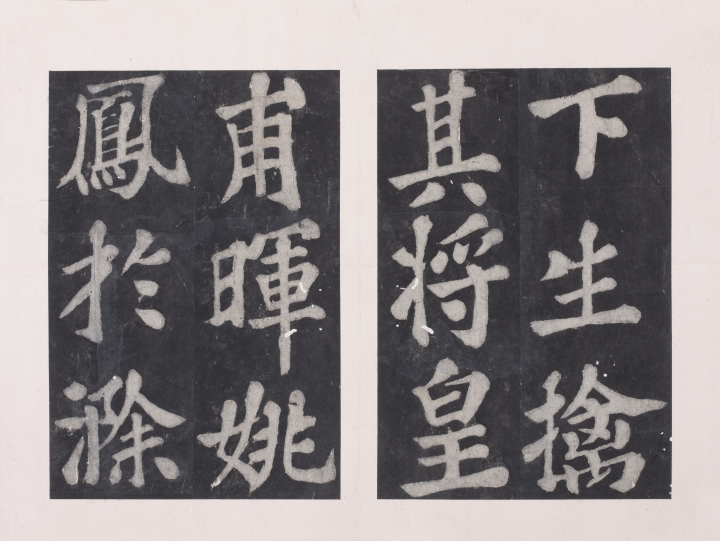 下生擒
其将皇
甫暉姚
鳳於滁